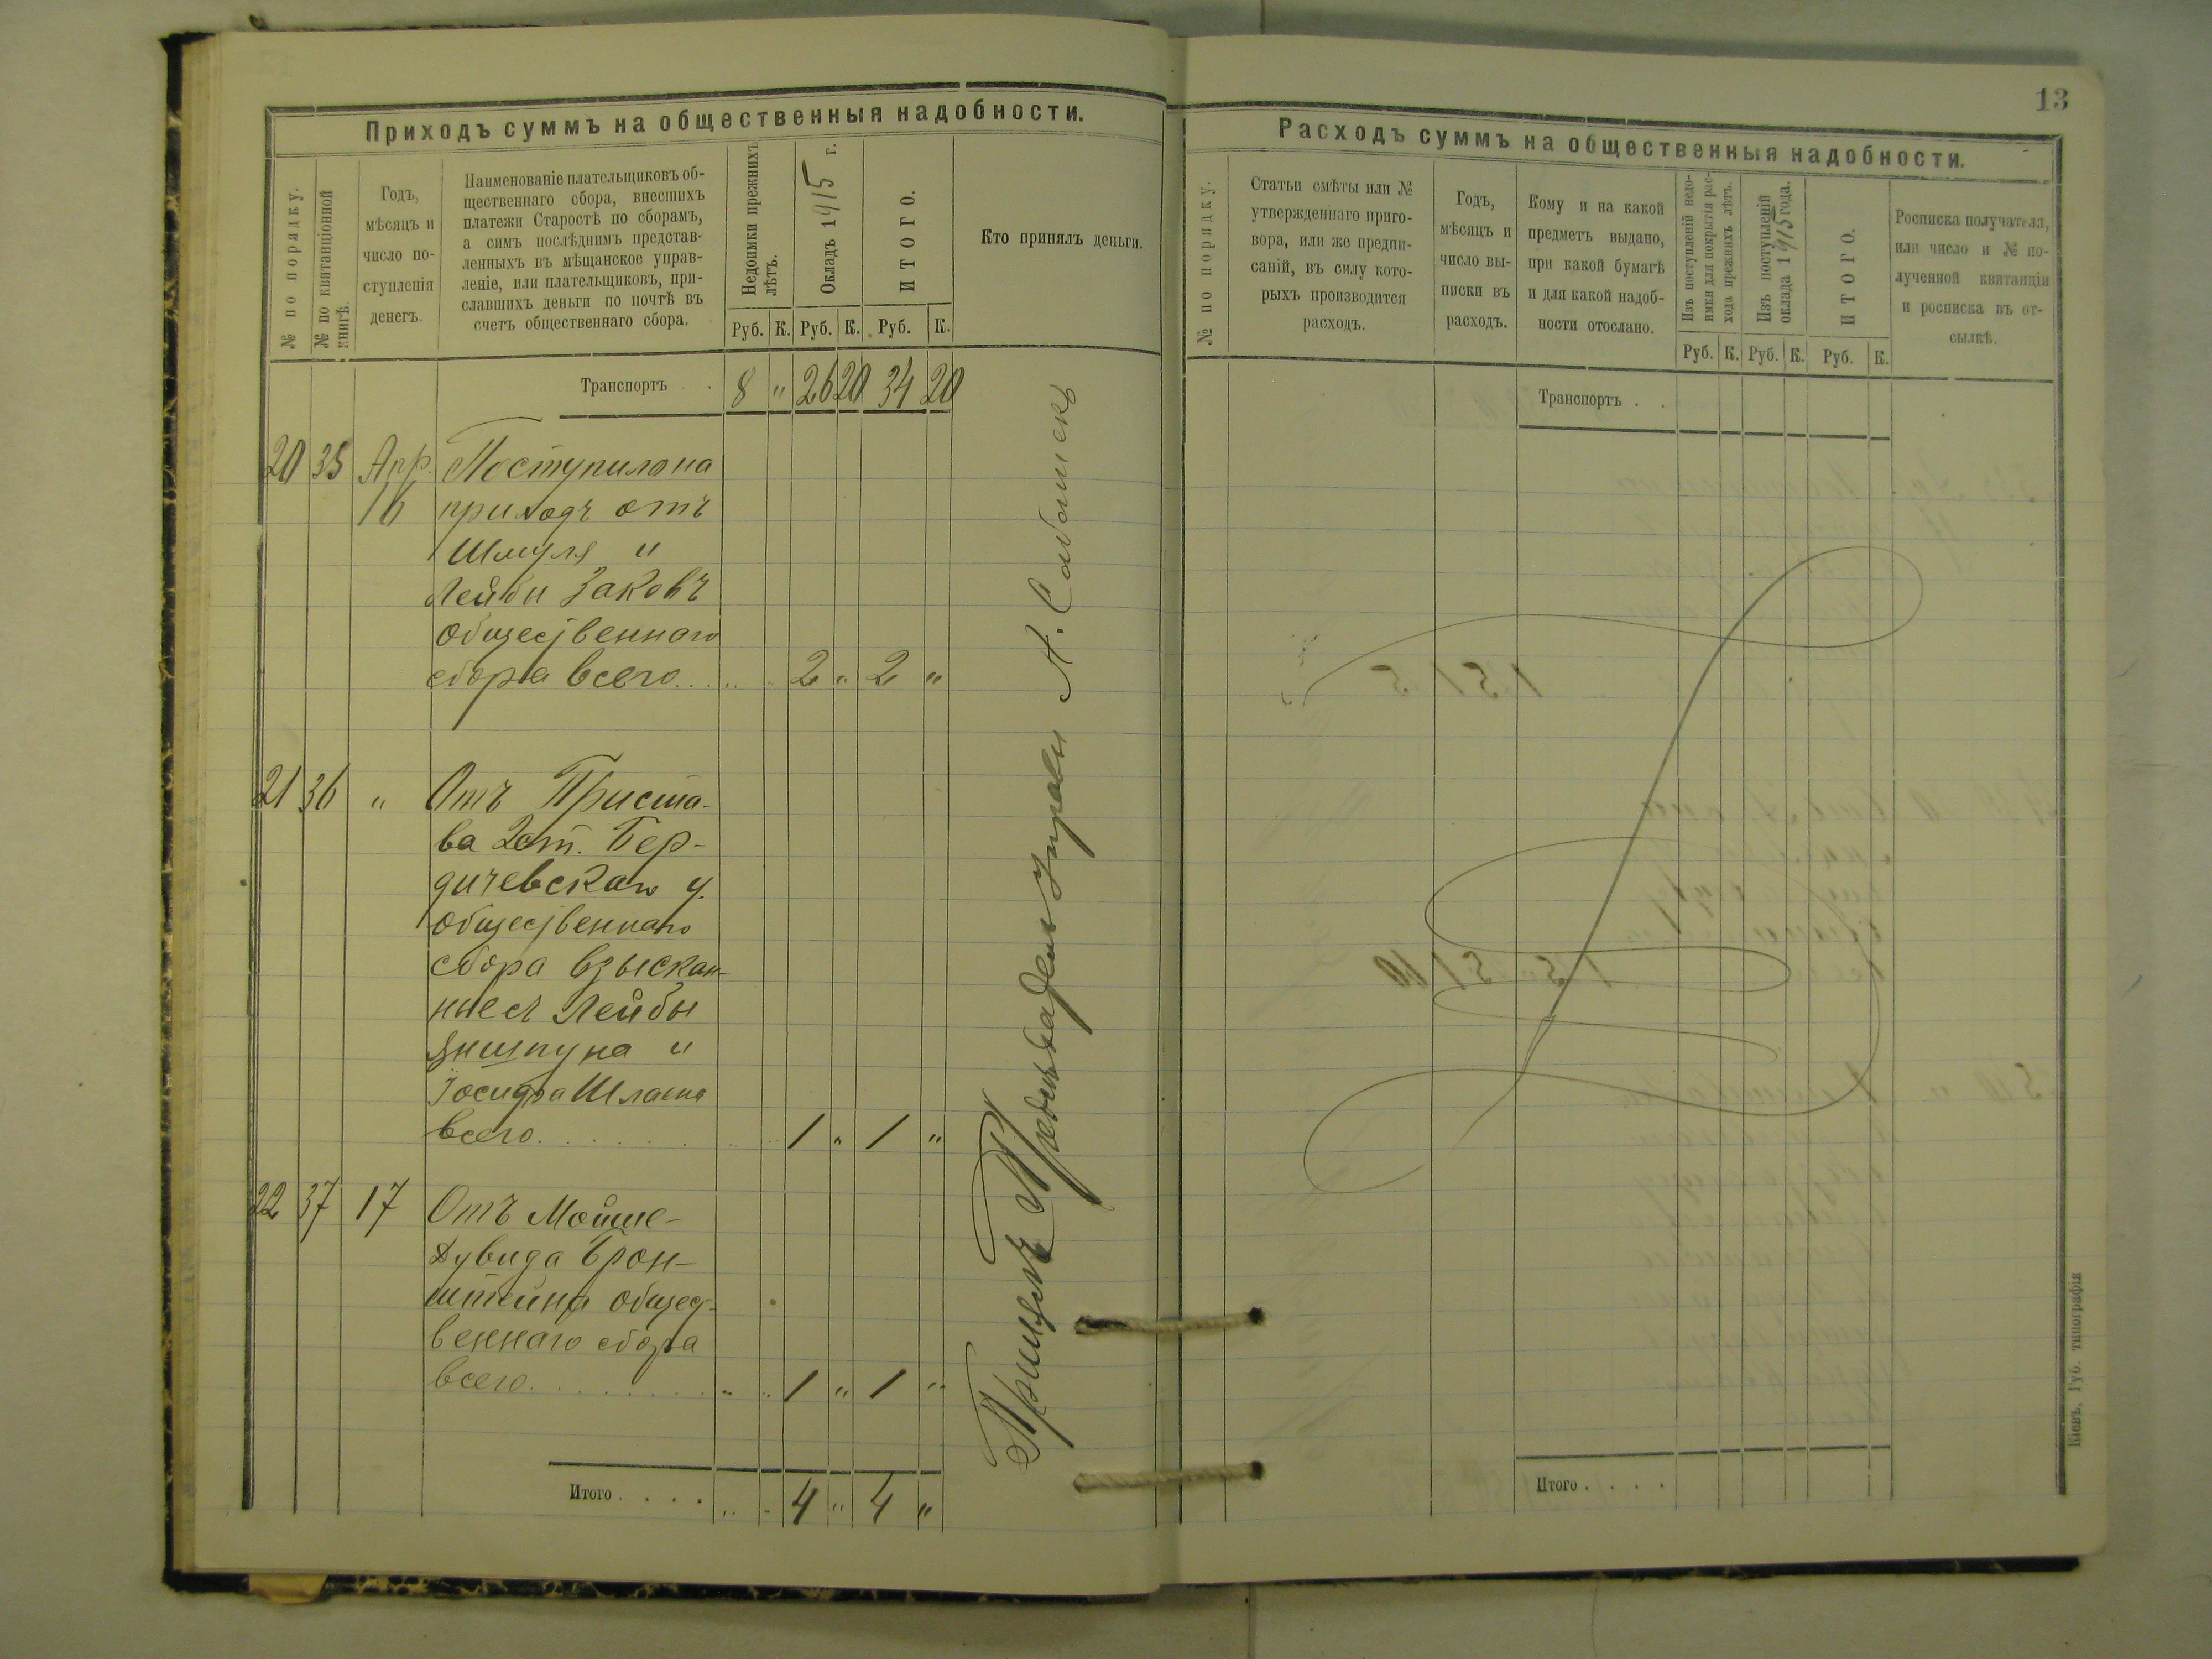 Приходъ суммъ на общественныя надобности.
№ по порядку.
№ по квитанціонной
книгѣ.
Годъ,
мѣсяцъ и
число по-
ступленія
денегъ.
Наименованіе плательщиковъ об-
щественнаго сбора, внесшихъ
платежи Старостѣ по сборамъ,
а симъ послѣднимъ представ-
ленныхъ въ мѣщанское управ-
леніе, или плательщиковъ, при-
славшихъ деньги по почтѣ въ
счетъ общественнаго сбора.
Недоимки прежнихъ
лѣтъ.
Окладъ 1915 г.
ИТОГО.
Кто принялъ деньги.
Руб. К. Руб. К. Руб. К.
Транспортъ . 8 " 26 20 34 20
20 35 Апр. Поступило на
16 приходъ отъ
Шмуля и
Лейбы Заковъ
общественнаго
сбора всего... " " 2 " 2 "
21 36 " Отъ Приста-
ва 2 ст. Бер-
дичевскаго у.
общественнаго
сбора взыскан-
ные съ Лейбы
и
Іосифа
всего. . . . . 1 " 1 "
22 37 17 Отъ Мойше-
Дувида Брон-
штейна общест-
веннаго сбора
всего. . . . . " " 1 " 1 "
Итого . . . . " " 4 " 4 "
Управы А.
13
Расходъ суммъ на общественныя надобности.
№ по порядку.
Статьи смѣты или №
утвержденнаго приго-
вора, или же предпи-
саній, въ силу кото-
рыхъ производится
расходъ.
Годъ,
мѣсяцъ и
число вы-
писки въ
расходъ.
Кому и на какой
предметъ выдано,
при какой бумагѣ
и для какой надоб-
ности отослано.
Изъ поступленій недо-
имки для покрытія рас-
хода прежнихъ лѣтъ.
Изъ поступленій
оклада 1915 года.
ИТОГО.
Росписка получателя,
или число и № по-
лученной квитанціи
и росписка въ от-
сылкѣ.
Руб. К. Руб. К. Руб. К.
Транспортъ . .
Итого . . . .
Кіевъ, Губ. типографія